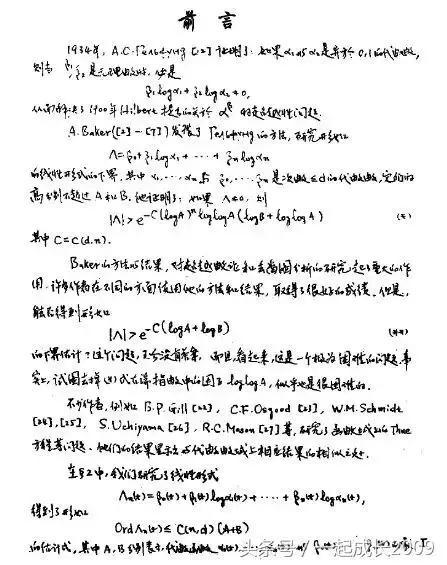 前言
1934年, A.O.Гельфонд [12] 证明了: 如果α₁与α₂是异于0,1的代数数,
β₁, β₂是
β₁logα₁ + β₂logα₂ ≠ 0,
从而解决了1900年Hilbert提出的关于α^β的超越性问题.
A.Baker([2]-[7])发展了Гельфонд的方法, 研究形如
Λ=β₀+β₁logα₁ + ··· + βₙlogαₙ
的线性形式的下界, 其中α₁,···,αₙ与β₀,···,βₙ是次数≤d的代数数, 它们的
高分别不超过A和B. 他证明了: 如果Λ≠0, 则
|Λ|>e^{-C(logA)ⁿloglogA(logB+loglogA)} (*)
其中C=C(d,n).
Baker的方法与结果, 对超越数论和丢番图分析的研究起了重大的作
用. 许多作者在不同的方面使用他的方法和结果, 取得了很好的成绩. 但是,
能否得到形如
|Λ|>e^{-C(logA+logB)} (**)
的下界估计? 这个问题, 至今没有答案, 而且看起来, 这是一个极为困难的问题. 事
实上, 试图去掉(*)式右端指数中的因子loglogA, 似乎也是很困难的.
不少作者, 例如B.P.Gill [22], C.F.Osgood [23], W.M.Schmidt
[24],[25], S.Uchiyama [26], R.C.Mason [27]等, 研究了函数域上的Thue
方程等问题. 他们的结果显示出与代数数域上相应结果的相似之处.
在§2中, 我们研究了线性形式
Λₙ(t)=β₀(t)+β₁(t)logα₁(t)+ ··· + βₙ(t)logαₙ(t),
得到了形如
OrdΛₙ(t) ≤ C(n,d)(A+B)
的估计式, 其中A,B分别表示代数函数
头条号/一起成长2009